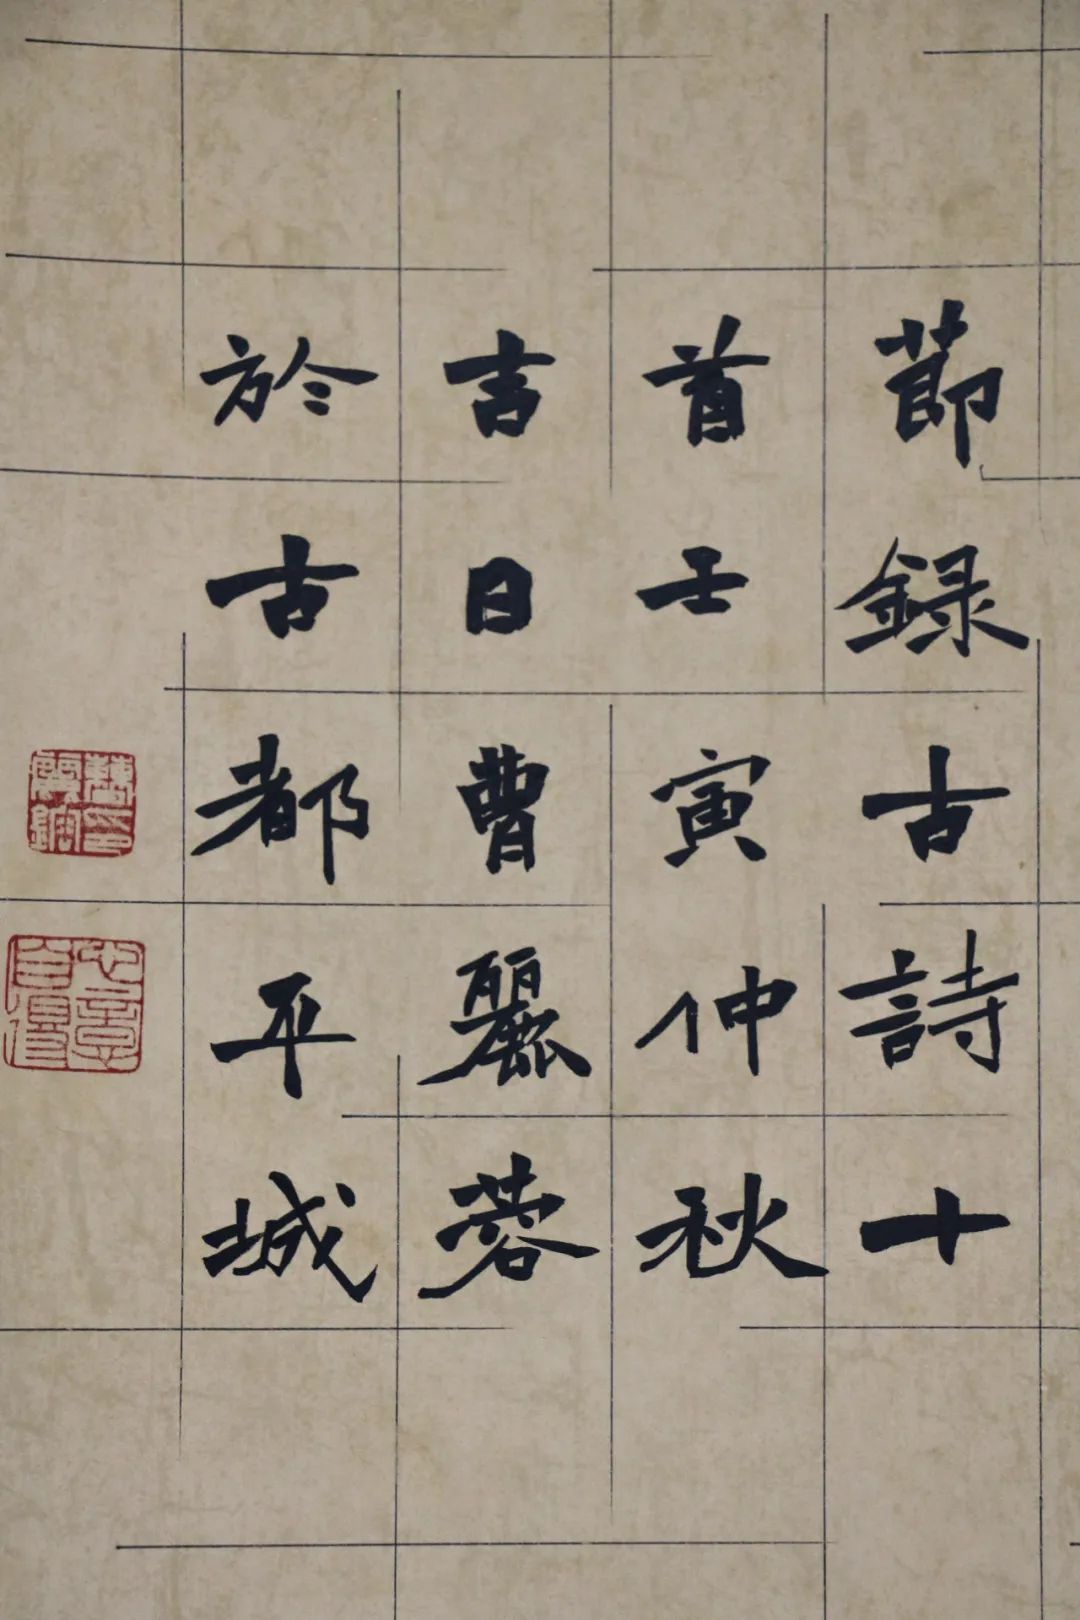 節録古詩十
首壬寅仲秋
吉日曹麗蓉
於古都平城